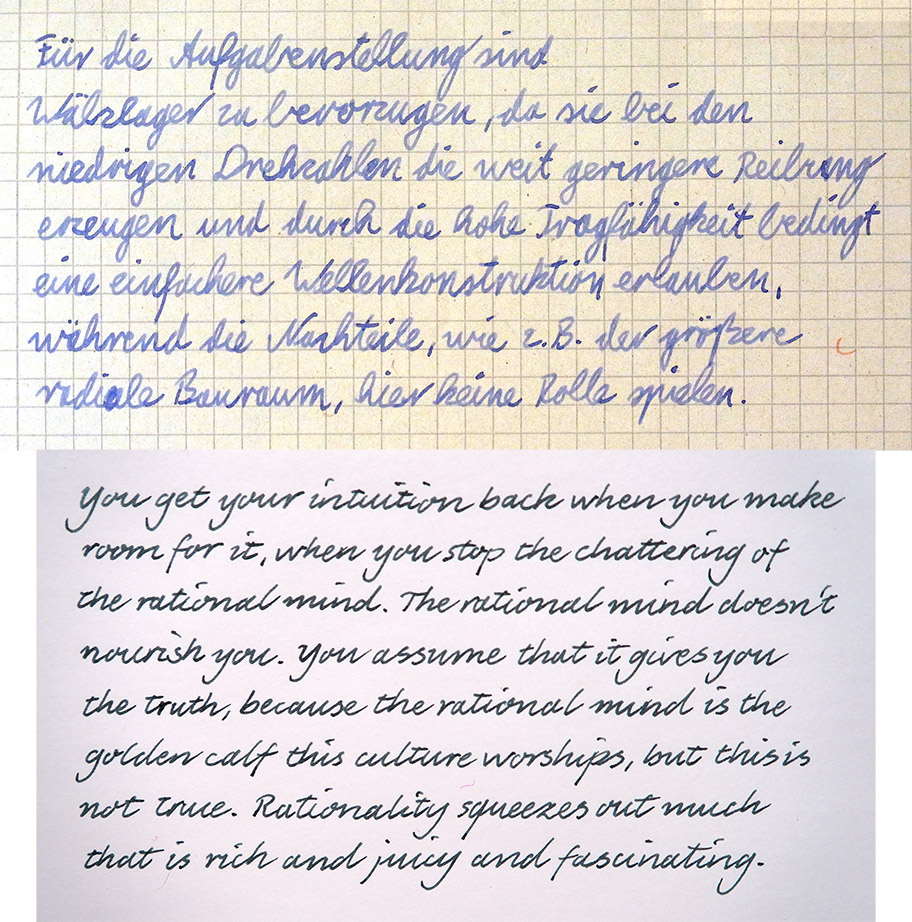 Für die Aufgabenstellung sind
Wälzlager zu bevorzugen, da sie bei den
niedrigen Drehzahlen die weit geringere Reibung
erzeugen und durch die hohe Tragfähigkeit bedingt
eine einfachere Wellenkonstruktion erlauben,
während die Nachteile, wie z.B. der größere
radiale Bauraum, hier keine Rolle spielen.
You get your intuition back when you make
room for it, when you stop the chattering of
the rational mind. The rational mind doesn't
nourish you. You assume that it gives you
the truth, because the rational mind is the
golden calf this culture worships, but this is
not true. Rationality squeezes out much
that is rich and juicy and fascinating.